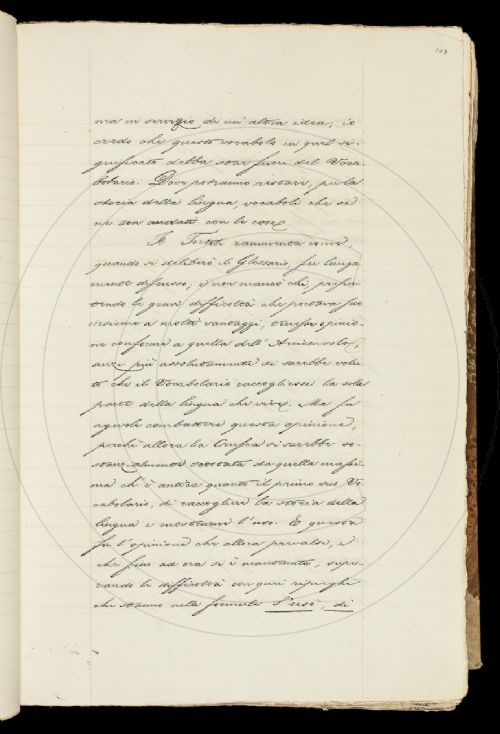 103
ma in servigio di un'altra idea, io
credo che questo vocabolo in quel si-
gnificato debba star fuori del Voca-
bolario. Dove potranno restare, per la
storia della lingua, vocaboli che se
ne son andati con le cose.
Il Tortoli rammenta come,
quando si deliberò il Glossario, fu lunga
mente discusso, e non mancò chi,
tendo le gravi difficoltà che portava seco
insieme a molti vantaggi, tenesse opinio-
ne conforme a quella dell'Arciconsolo,
anzi più assolutamente si sarebbe volu
to che il Vocabolario raccogliesse la sola
parte della lingua che vive. Ma fu
agevole combattere questa opinione,
perché allora la Crusca si sarebbe so-
stanzialmente scostata da quella massi-
ma ch'è antica quanto il primo suo Vo
cabolario, di raccogliere la storia della
lingua e mostrarne l'uso. E questa
fu l'opinione che allora prevalse, e
che fino ad ora si è mantenuta, supe-
rando le difficoltà con quei ripieghi
che stanno nella formula S'usò, di